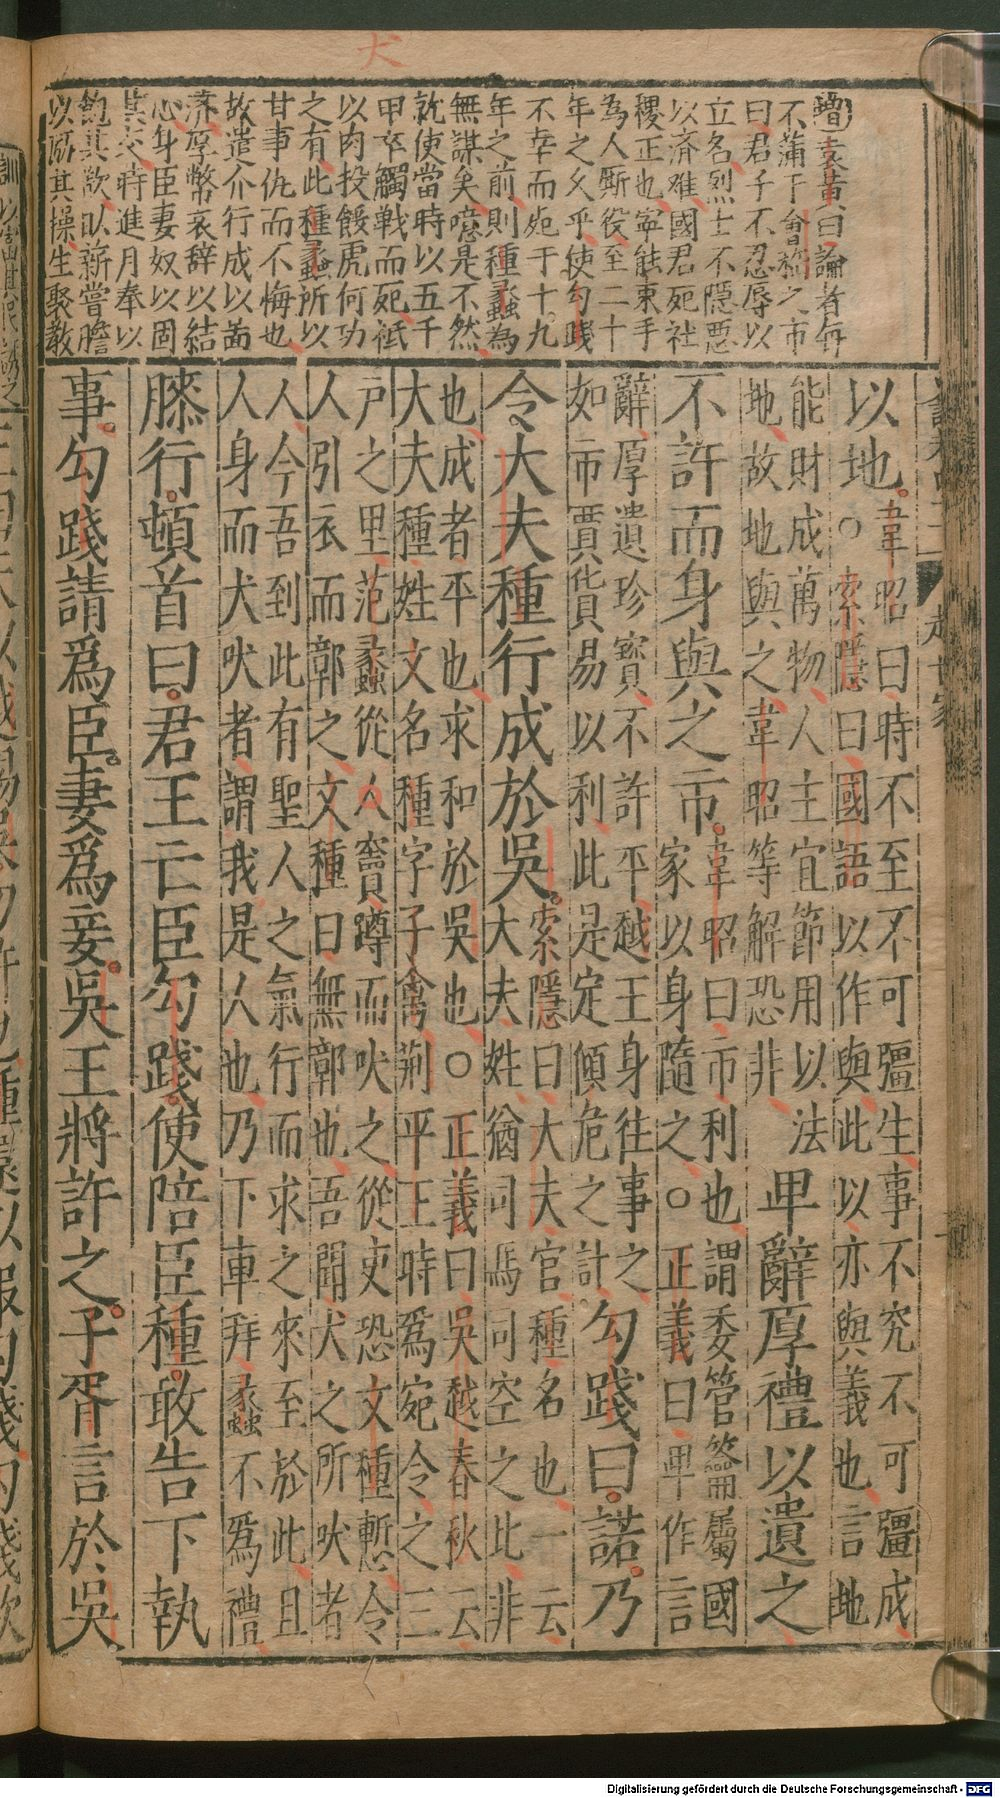 犬
增袁黃曰論者每
不滿于會稽之市
曰君子不忍辱以
立名烈士不隱惡
以済难國君死社
稷正也寧能束手
為人厮役至二十
年之久乎使勾踐
不幸而死于十九
年之前則種蠡為
無謀矣噫是不然
就使當時以五千
甲卒觸戰而死祗
以肉投餒虎何功
之有此種蠡所以
甘事仇而不悔也
故遣介行成以啚
済厚幣哀辞以結
心身臣妻奴以固
其交時進月奉以
飽其欲臥薪嘗膽
以
其操生聚教
以地韋昭曰時不至不可彊生事不究不可彊成
○索隱曰國語以作與此以亦與義也言地
能財成萬物人主宜節用以法
地故地與之韋昭等解恐非
卑辭厚禮以遺之
不許而身與之市韋昭曰市利也謂委管籥屬國
家以身隨之○正義曰卑作言
辭厚遺珍寶不許平越王身往事之
如市賈貨易以利此是定傾危之計
勾踐曰諾乃
令大夫種行成於吳索隱曰大夫官種名也一云
大夫姓猶司馬司空之比非
也成者平也求和於吳也○正義曰吳越春秋云
大夫種姓文名種字子禽荆平王時爲宛令之三
戶之里范蠡從人竇蹲而吠之從吏恐文種慙令
人引衣而鄣之文種曰無鄣也吾聞犬之所吠者
人今吾到此有聖人之氣行而求之來至於此且
人身而犬吠者謂我是人也乃下車拜蠡不爲禮
膝行頓首曰君王亡臣勾踐使陪臣種敢告下執
事勾踐請爲臣妻爲妾吳王將許之子胥言於吳
Digitalisierung gefördert durch die Deutsche Forschungsgemeinschaft - DFG